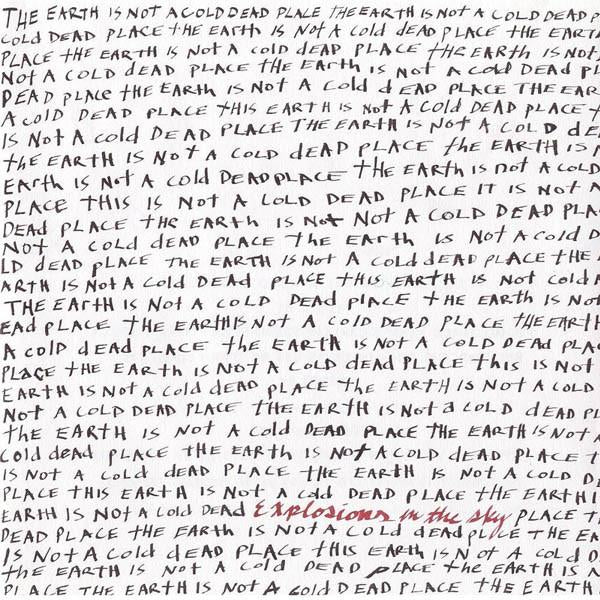 THE EARTH IS NOT A COLD DEAD PLACE THE EARTH IS NOT A COLD DEAD P
COLD DEAD PLACE THE EARTH IS NOT A COLD DEAD PLACE THE EARTH
PLACE THE EARTH IS NOT A COLD DEAD PLACE THE EARTH IS NOT
NOT A COLD DEAD PLACE THE EARTH IS NOT A COLD DEAD PL
DEAD PLACE THE EARTH IS NOT A COLD DEAD PLACE THE EAR
A COLD DEAD PLACE THIS EARTH IS NOT A COLD DEAD PLACE
IS NOT A COLD DEAD PLACE THE EARTH IS NOT A COLD DE
THE EARTH IS NOT A COLD DEAD PLACE THE EARTH IS N
EARTH IS NOT A COLD DEAD PLACE THE EARTH IS NOT A COLD
PLACE THIS IS NOT A COLD DEAD PLACE IT IS NOT A
DEAD PLACE THE EARTH IS NOT NOT A COLD DEAD PLA
NOT A COLD DEAD PLACE THE EARTH IS NOT A COLD D
LD DEAD PLACE THE EARTH IS NOT A COLD DEAD PLACE THE
ARTH IS NOT A COLD DEAD PLACE THIS EARTH IS NOT COLD
THE EARTH IS NOT A COLD DEAD PLACE THE EARTH IS NOT
EAD PLACE THE EARTH IS NOT A COLD DEAD PLACE THE EARTH
A COLD DEAD PLACE THE EARTH IS NOT A COLD DEAD PLAC
PLACE THE EARTH IS NOT A COLD DEAD PLACE THIS IS NOT
EARTH IS NOT A COLD DEAD PLACE THE EARTH IS NOT A COLD
NOT A COLD DEAD PLACE THE EARTH IS NOT A COLD DEAD PL
THE EARTH IS NOT A COLD DEAD PLACE THE EARTH IS NOT A
COLD DEAD PLACE THE EARTH IS NOT A COLD DEAD PLACE T
IS NOT A COLD DEAD PLACE THE EARTH IS NOT A COLD D
PLACE THIS EARTH IS NOT A COLD DEAD PLACE THE EARTH I
EARTH IS NOT A COLD DEAD Explosions in the sky PLACE T
DEAD PLACE THE EARTH IS NOT A COLD DEAD PLACE THE EA
IS NOT A COLD DEAD PLACE THIS EARTH IS NOT A COLD D
THE EARTH IS NOT A COLD DEAD PLACE THE EARTH IS NOT
PLACE THE EARTH IS NOT A COLD DEAD PLACE THE EARTH